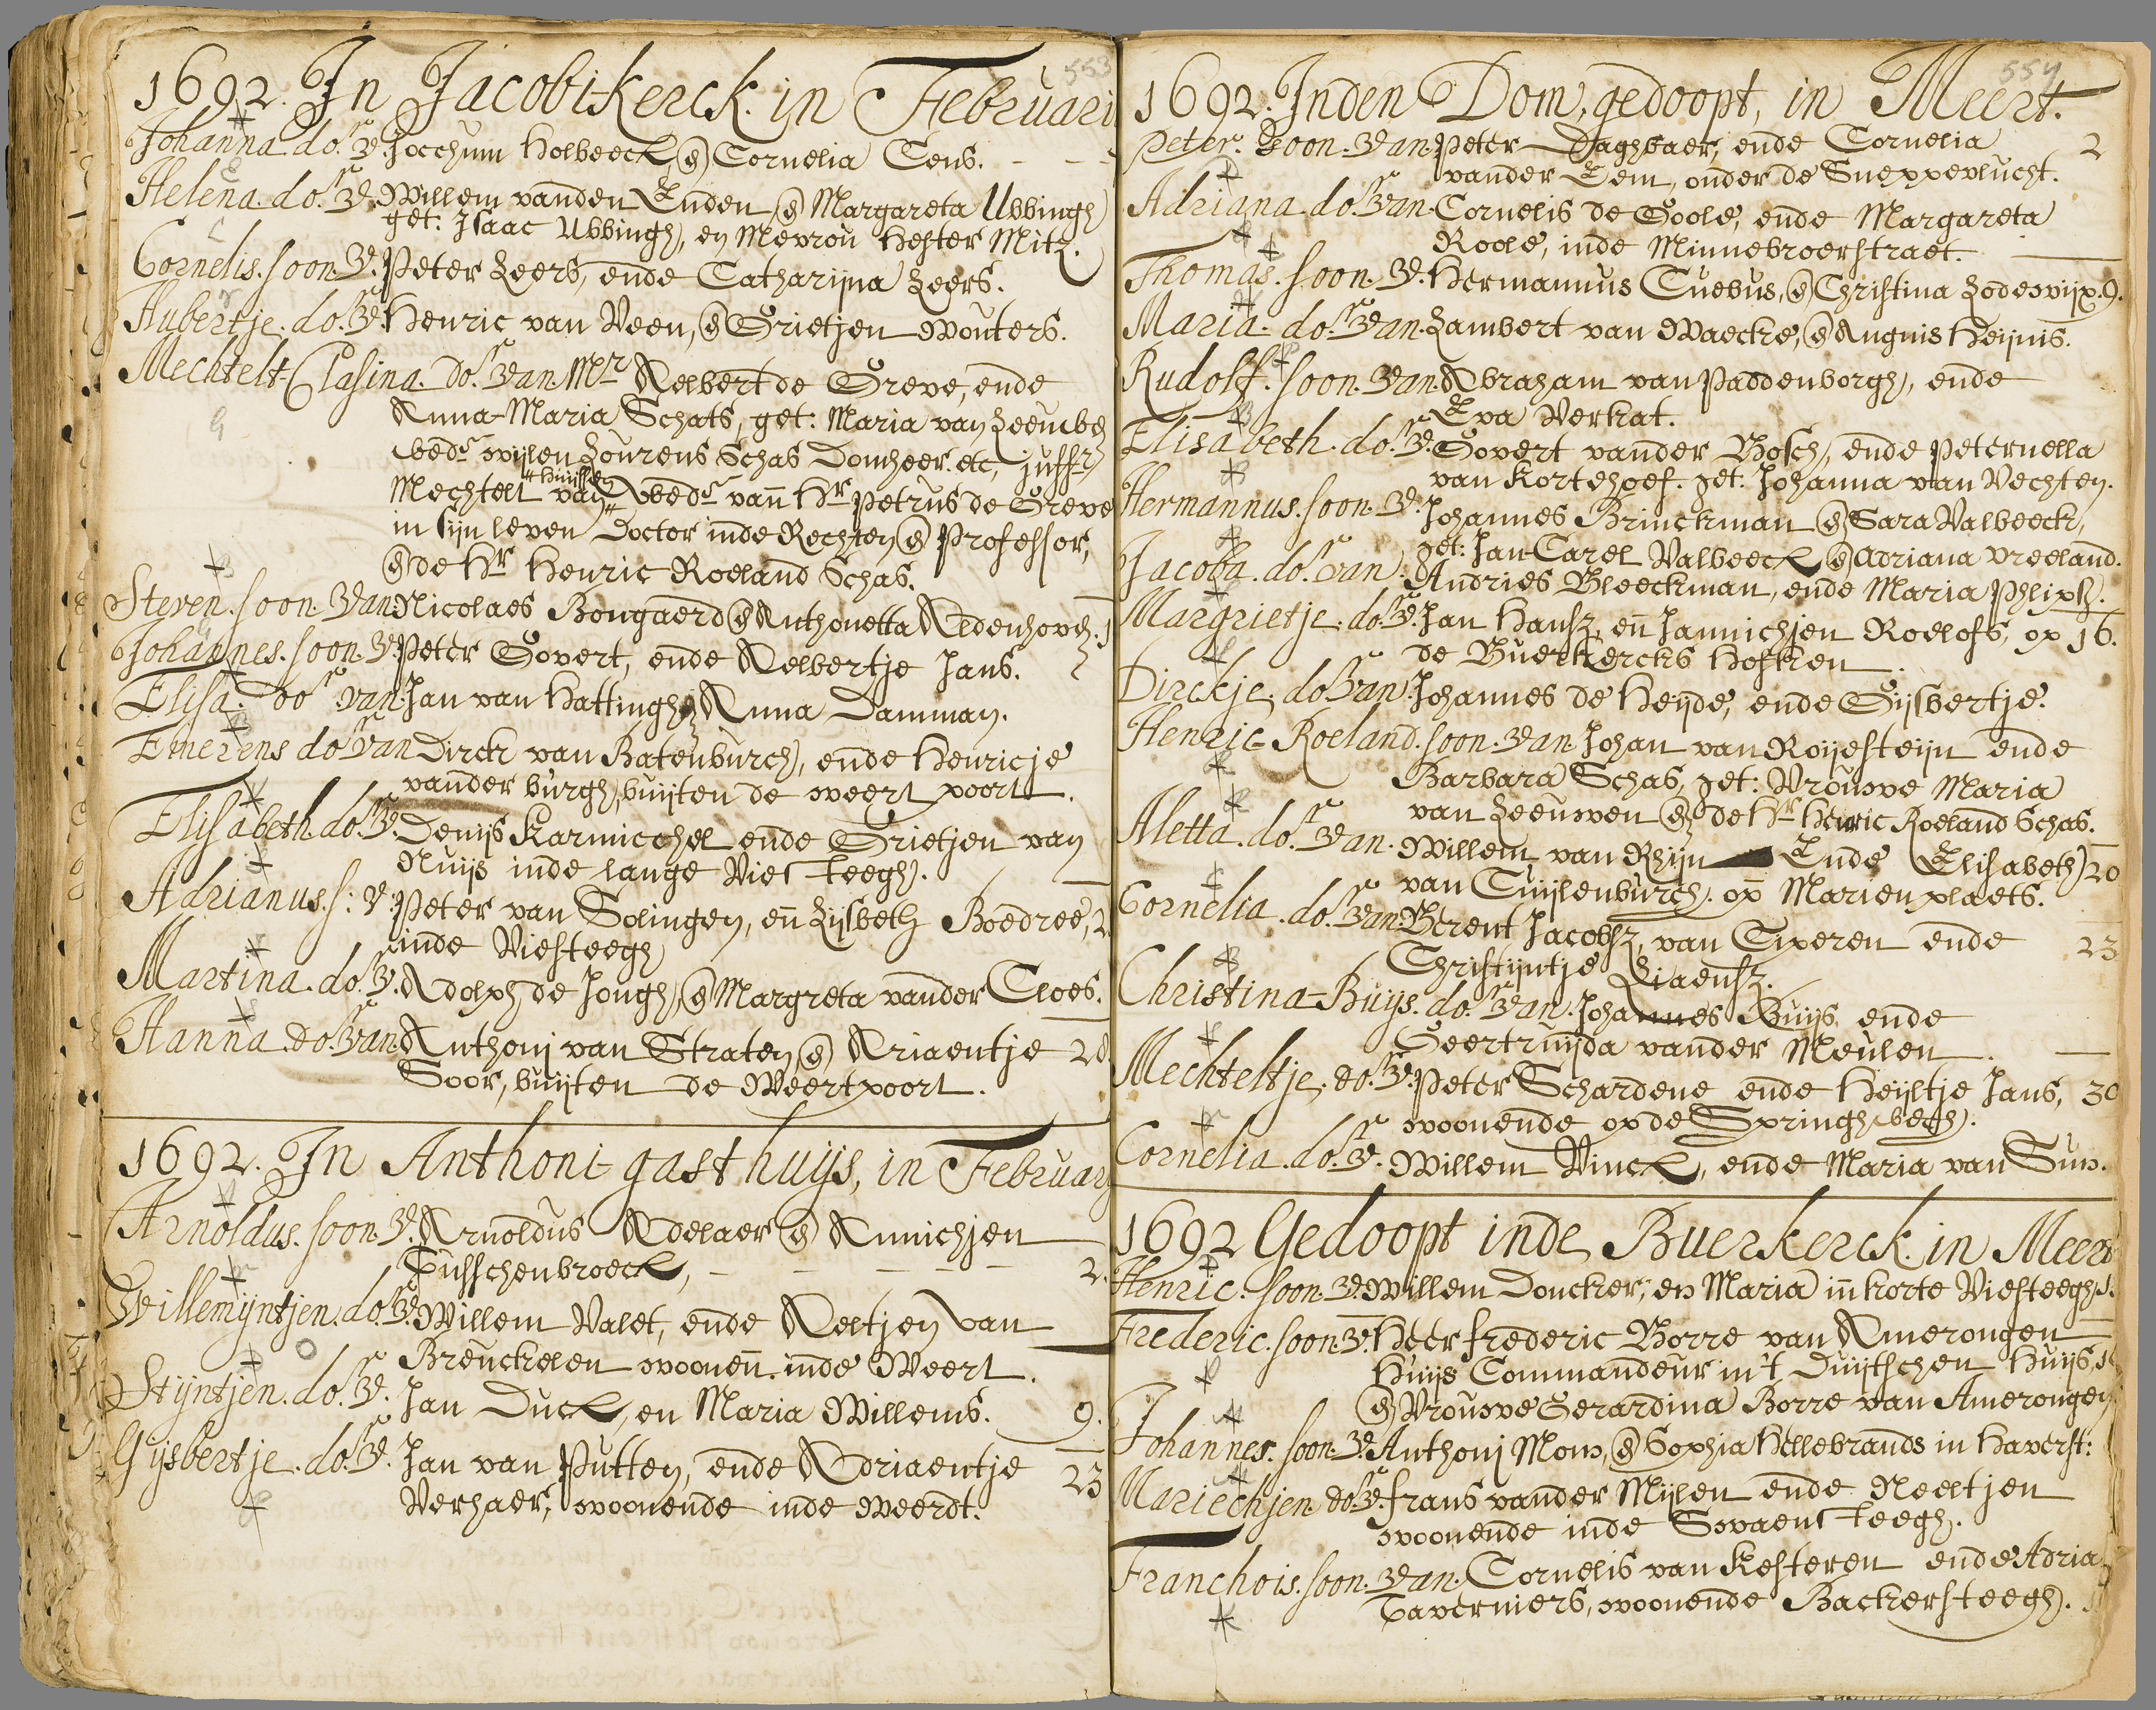 553
1692. In Jacobi-Kerck. in Februari
Johanna do.r v. Jocchum Holbeeck en Cornelia Cens.
Helena. do.r v. Willem vanden Enden en Margareta Ubbingh
get: Isaac Ubbingh, en Mevrou Hester Mitz.
Cornelis. soon. v. Peter Leers, ende Catharijna Leers.
Hubertje. do.r v. Henric van Veen, en Grietjen Wouters.
Mechtelt-Clasina. do.r van. Mr Aelbert de Greve, ende
Anna-Maria Schats, get: Maria van Leeuwe
wed.r wijlen Lourens Schas Domheer. etc, juffr
Mechtelt van wed.r vann Hr Petrus de Greve
in sijn leven Doctor inde Rechten en Professor,
en de Hr Henric Roeland Schas.
Steven. soon. van. Nicolaes Bongaerd en Anthonetta Aldenhoven.
Johannes. soon. v. Peter Govert, ende Aelbertje Jans.
Elisa. do.r van. Jan van Hattingh en Anna Damman.
Emerens do.r van Dirck van Batenburch, ende Henricje
vander burgh, buijten de weert poort.
Elisabeth. do.r v. Denijs Karmicchel ende Grietjen van
Nuijs inde lange Vies teegh.
Adrianus. s: v. Peter van Solingen, en Lijsbeth Boedree,
inde Viesteegh
Martina. do.r v. Adolph de Jongh, en Margreta vander Cloes.
Hanna. do.r van. Anthonj van Straten en Ariaentje 20
Goor, buijten de Weertpoort.
1692. In Anthoni-gasthuijs, in Februari
Arnoldus. soon. v. Arnoldus Adelaer en Annichjen
Tusschenbroeck, 2.
Willemijntjen. do.r v. Willem Valet, ende Aeltjen van
Breuckelen woonen. inde Weert.
Stijntjen. do.r v. Jan Duck, en Maria Willems. 9.
Gijsbertje. do.r v. Jan van Putten, ende Adriaentje 23
Verhaer, woonende inde Weerdt.
554
1692. Inden Dom, gedoopt, in Meert.
Peter. Soon. van Peter Daghvaer, ende Cornelia 2
vander Eem, onder de Sneppevlucht.
Adriana do.r van Cornelis de Goole, ende Margareta
Roole, inde Minnebroerstraet.
Thomas. soon. v. Hermannus Cuebus, en Christina Lodewijx. 9.
Maria. do.r van. Lambert van Waecke, en Angnis Heijnis.
Rudolf. soon. van. Abraham van Paddenborgh, ende
Eva Verkat.
Elisabeth. do.r v. Govert vander Bosch, ende Peternella
van Kortehoef. get: Johanna van Vechten.
Hermannus. soon. v. Johannes Brinckman en Sara Valbeeck,
get: Jan-Carel Valbeeck en Adriana Vreeland.
Jacoba. do.r van. Andries Bleeckman, ende Maria Phlips.
Margrietje. do.r v. Jan Hansz, en Jannichjen Roelofs, op 16.
de Buerkercks Hofken
Dirckje. do.r van. Johannes de Heijde, ende Gijsbertje.
Henric-Roeland. soon. van Johan van Roijesteijn ende
Barbara Schas, get: Vrouwe Maria
van Leeuwen en de Hr Henric Roeland Schas.
Aletta. do.r van. Willem van Rhijn Ende Elisabeth 20
van Cuijlenburch. op Marienplaets.
Cornelia. do.r van. Berent Jacobsz, van Eperen ende 23
Christijntje Liaensz.
Christina-Buijs. do.r van. Johannes Buijs ende
Geertruijda vander Meulen.
Mechteltje. do.r v. Peter Schardene ende Heijltje Jans, 30
woonende op de Springhwegh.
Cornelia. do.r v. Willem Vinck, ende Maria van Suw.
1692 Gedoopt inde Buerkerck. in Meert
Henric. soon. v. Willem Doncker, en Maria in korte Viesteegh.
Frederic. soon. v. Heer frederic Borre van Amerongen
Huijs Commandeur in't Duijtschen Huijs,
en Vrouwe Gerardina Borre van Amerongen
Johannes. soon. v. Anthonj Mom, en Sophia Hillebrands in Haverst:
Mariechjen do.r v. frans vander Mijlen ende Neeltjen
woonende inde Swaens teegh.
Franchois. soon. van. Cornelis van Kesteren ende Adria
Taverniers, woonende Backersteegh.